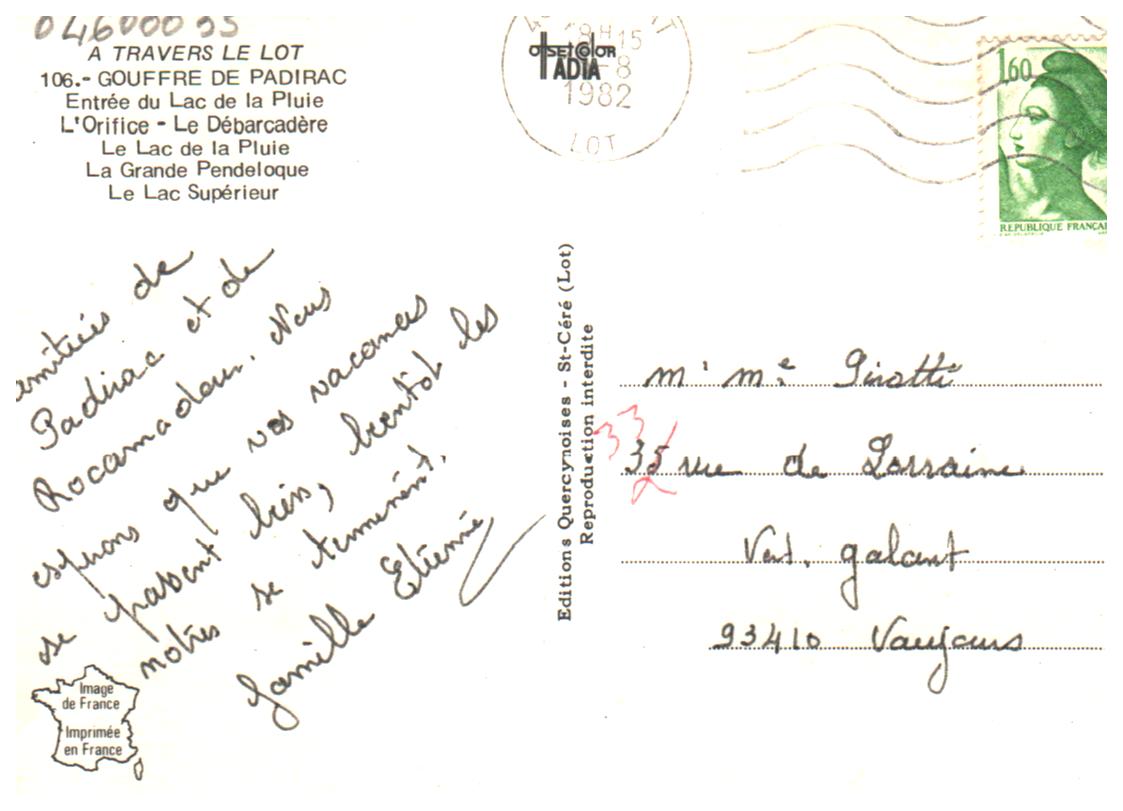 04600033
A TRAVERS LE LOT
106.- GOUFFRE DE PADIRAC
Entrée du Lac de la Pluie
L'Orifice - Le Débarcadère
Le Lac de la Pluie
La Grande Pendeloque
Le Lac Supérieur
18H15
-8
1982
LOT
1,60
REPUBLIQUE FRANÇAI
amitiés de
Padirac et de
Rocamadour. Nous
espérons que vos vacances
se passent bien, bientôt les
notres se terminent.
famille Etienne
Image
de France
Imprimée
en France
Editions Quercynoises - St-Céré (Lot)
Reproduction interdite
33
35 rue de Lorraine
Vert. galant
93410 Vaujours